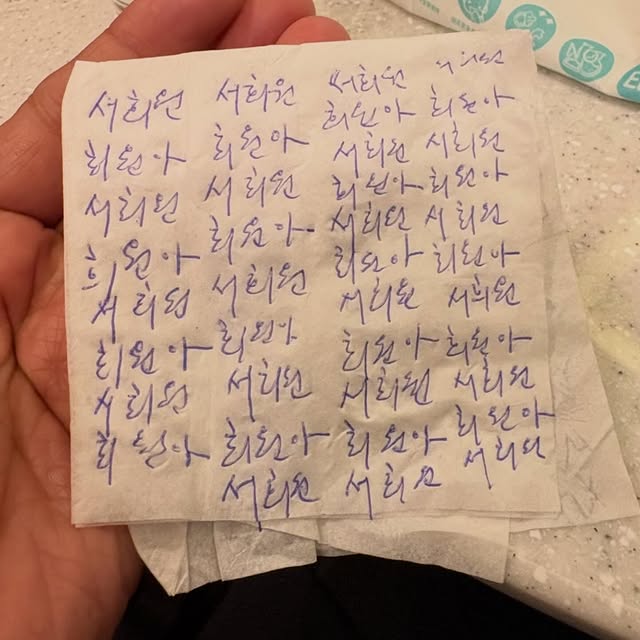 서희원 서희원 서희원 서희원
희원아 희원아 희원아 희원아
서희원 서희원 서희원 서희원
희원아 희원아 희원아 희원아
서희원 서희원 서희원 서희원
희원아 희원아 희원아 희원아
서희원 서희원 서희원 서희원
희원아 희원아 희원아 희원아
서희원 서희원 서희원